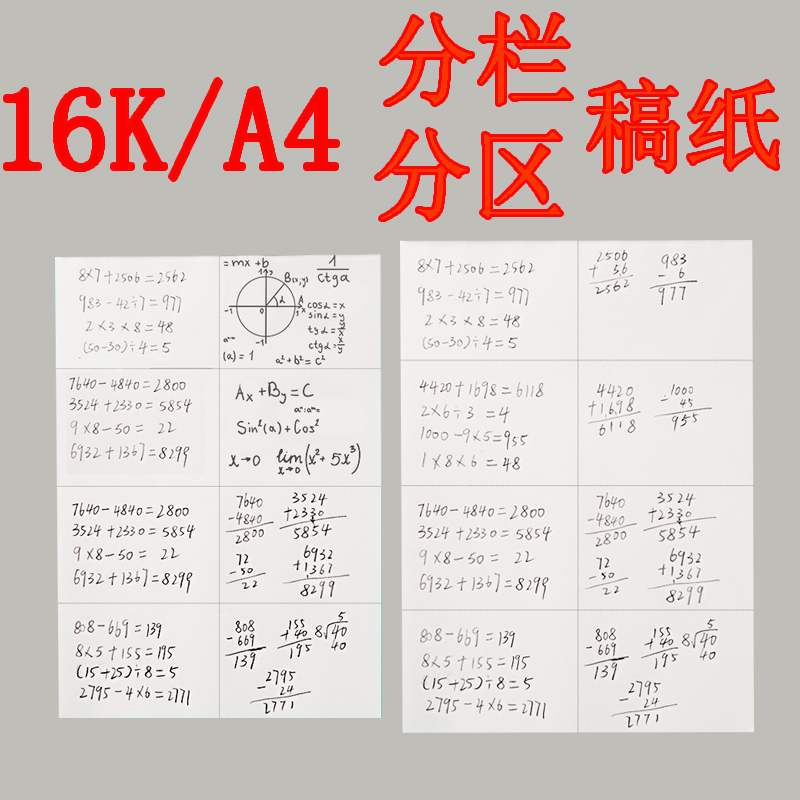 16K/A4
分栏
分区
稿纸
8×7+2506=2562
983-42÷7=977
2×3×8=48
(50-30)÷4=5
=mx+b
1
ctga
y
B(x;y)
A
α
-1
0
1
x
-1
cosα=x
sinα=y
tgα=y/x
ctgα=x/y
(a)=1
a²+b²=c²
7640-4840=2800
3524+2330=5854
9×8-50= 22
6932+1367=8299
Ax+By=C
Sin²(a)+Cos²
x→0 lim(x²+5x³)
x→0
7640-4840=2800
3524+2330=5854
9×8-50= 22
6932+1367=8299
7640 3524
-4840 +2330
2800 5854
72 6932
-50 +1367
22 8299
808-669=139
8×5+155=195
(15+25)÷8=5
2795-4×6=2771
5
808 155 8√40
-669 +40 40
139 195
2795
- 24
2771
8×7+2506=2562
983-42÷7=977
2×3×8=48
(50-30)÷4=5
2506 983
+ 56 - 6
2562 977
4420+1698=6118
2×6÷3=4
1000-9×5=955
1×8×6=48
4420 1000
+1698 - 45
6118 955
7640-4840=2800
3524+2330=5854
9×8-50= 22
6932+1367=8299
7640 3524
-4840 +2330
2800 5854
72 6932
-50 +1367
22 8299
808-669=139
8×5+155=195
(15+25)÷8=5
2795-4×6=2771
5
808 155 8√40
-669 +40 40
139 195
2795
- 24
2771